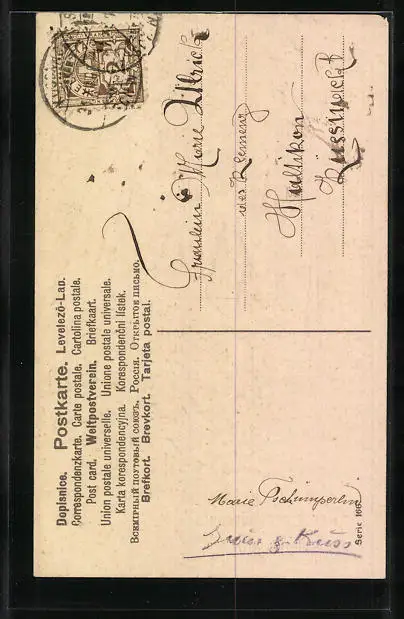 Dopisnice. Postkarte. Levelező-Lap.
Correspondenzkarte. Carte postale. Cartolina postale.
Post card. Weltpostverein. Briefkaart.
Union postale universelle. Unione postale universale.
Karta korespondencyjna. Korespondenční lístek.
Всемірный почтовый союзъ. Россия. Открытое письмо.
Brefkort. Brevkort. Tarjeta postal.
Fräulein Marie Ulrich
Küssnacht
Marie Tschümperlin
Gruss & Kuss